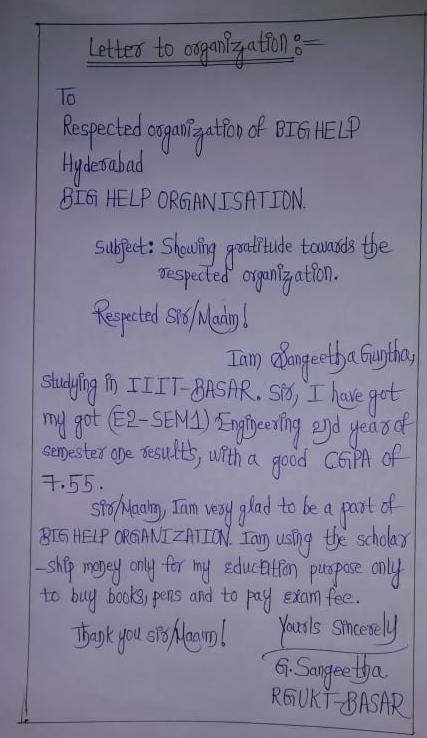 Letter to organization :-
To
Respected organization of BIG HELP
Hyderabad
BIG HELP ORGANISATION.
Subject: Showing gratitude towards the
respected organization.
Respected Sir/Maam!
Iam Sangeetha Guntha,
studying in IIIT-BASAR. Sir, I have got
my got (E2-SEM1) Engineering 2nd year of
semester one results, with a good CGPA of
7.55.
Sir/Maam, Iam very glad to be a part of
BIG HELP ORGANIZATION. Iam using the scholar
-ship money only for my education purpose only
to buy books, pens and to pay exam fee.
Thank you sir/Maam!
Yours Sincerely
G. Sangeetha.
RGUKT-BASAR